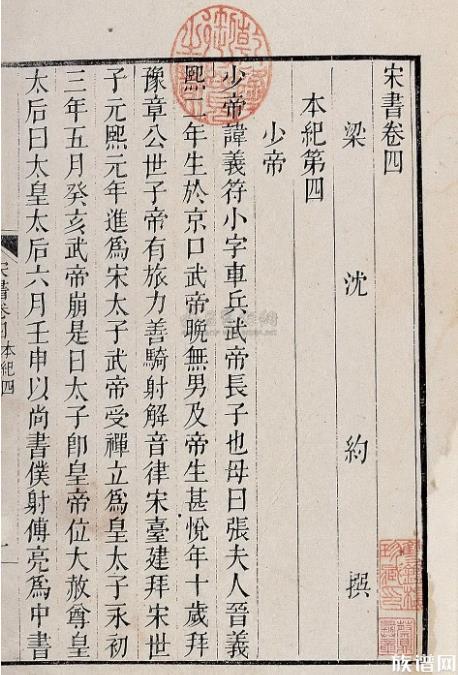 宋書卷四
梁沈約撰
本紀第四
少帝
少帝諱義符小字車兵武帝長子也母曰張夫人晉義
熙二年生於京口武帝晚無男及帝生甚悅年十歲拜
豫章公世子帝有旅力善騎射解音律宋臺建拜宋世
子元熙元年進為宋太子武帝受禪立為皇太子永初
三年五月癸亥武帝崩是日太子卽皇帝位大赦尊皇
太后曰太皇太后六月壬申以尚書僕射傅亮為中書
宋書卷四 本紀四
一
族谱网